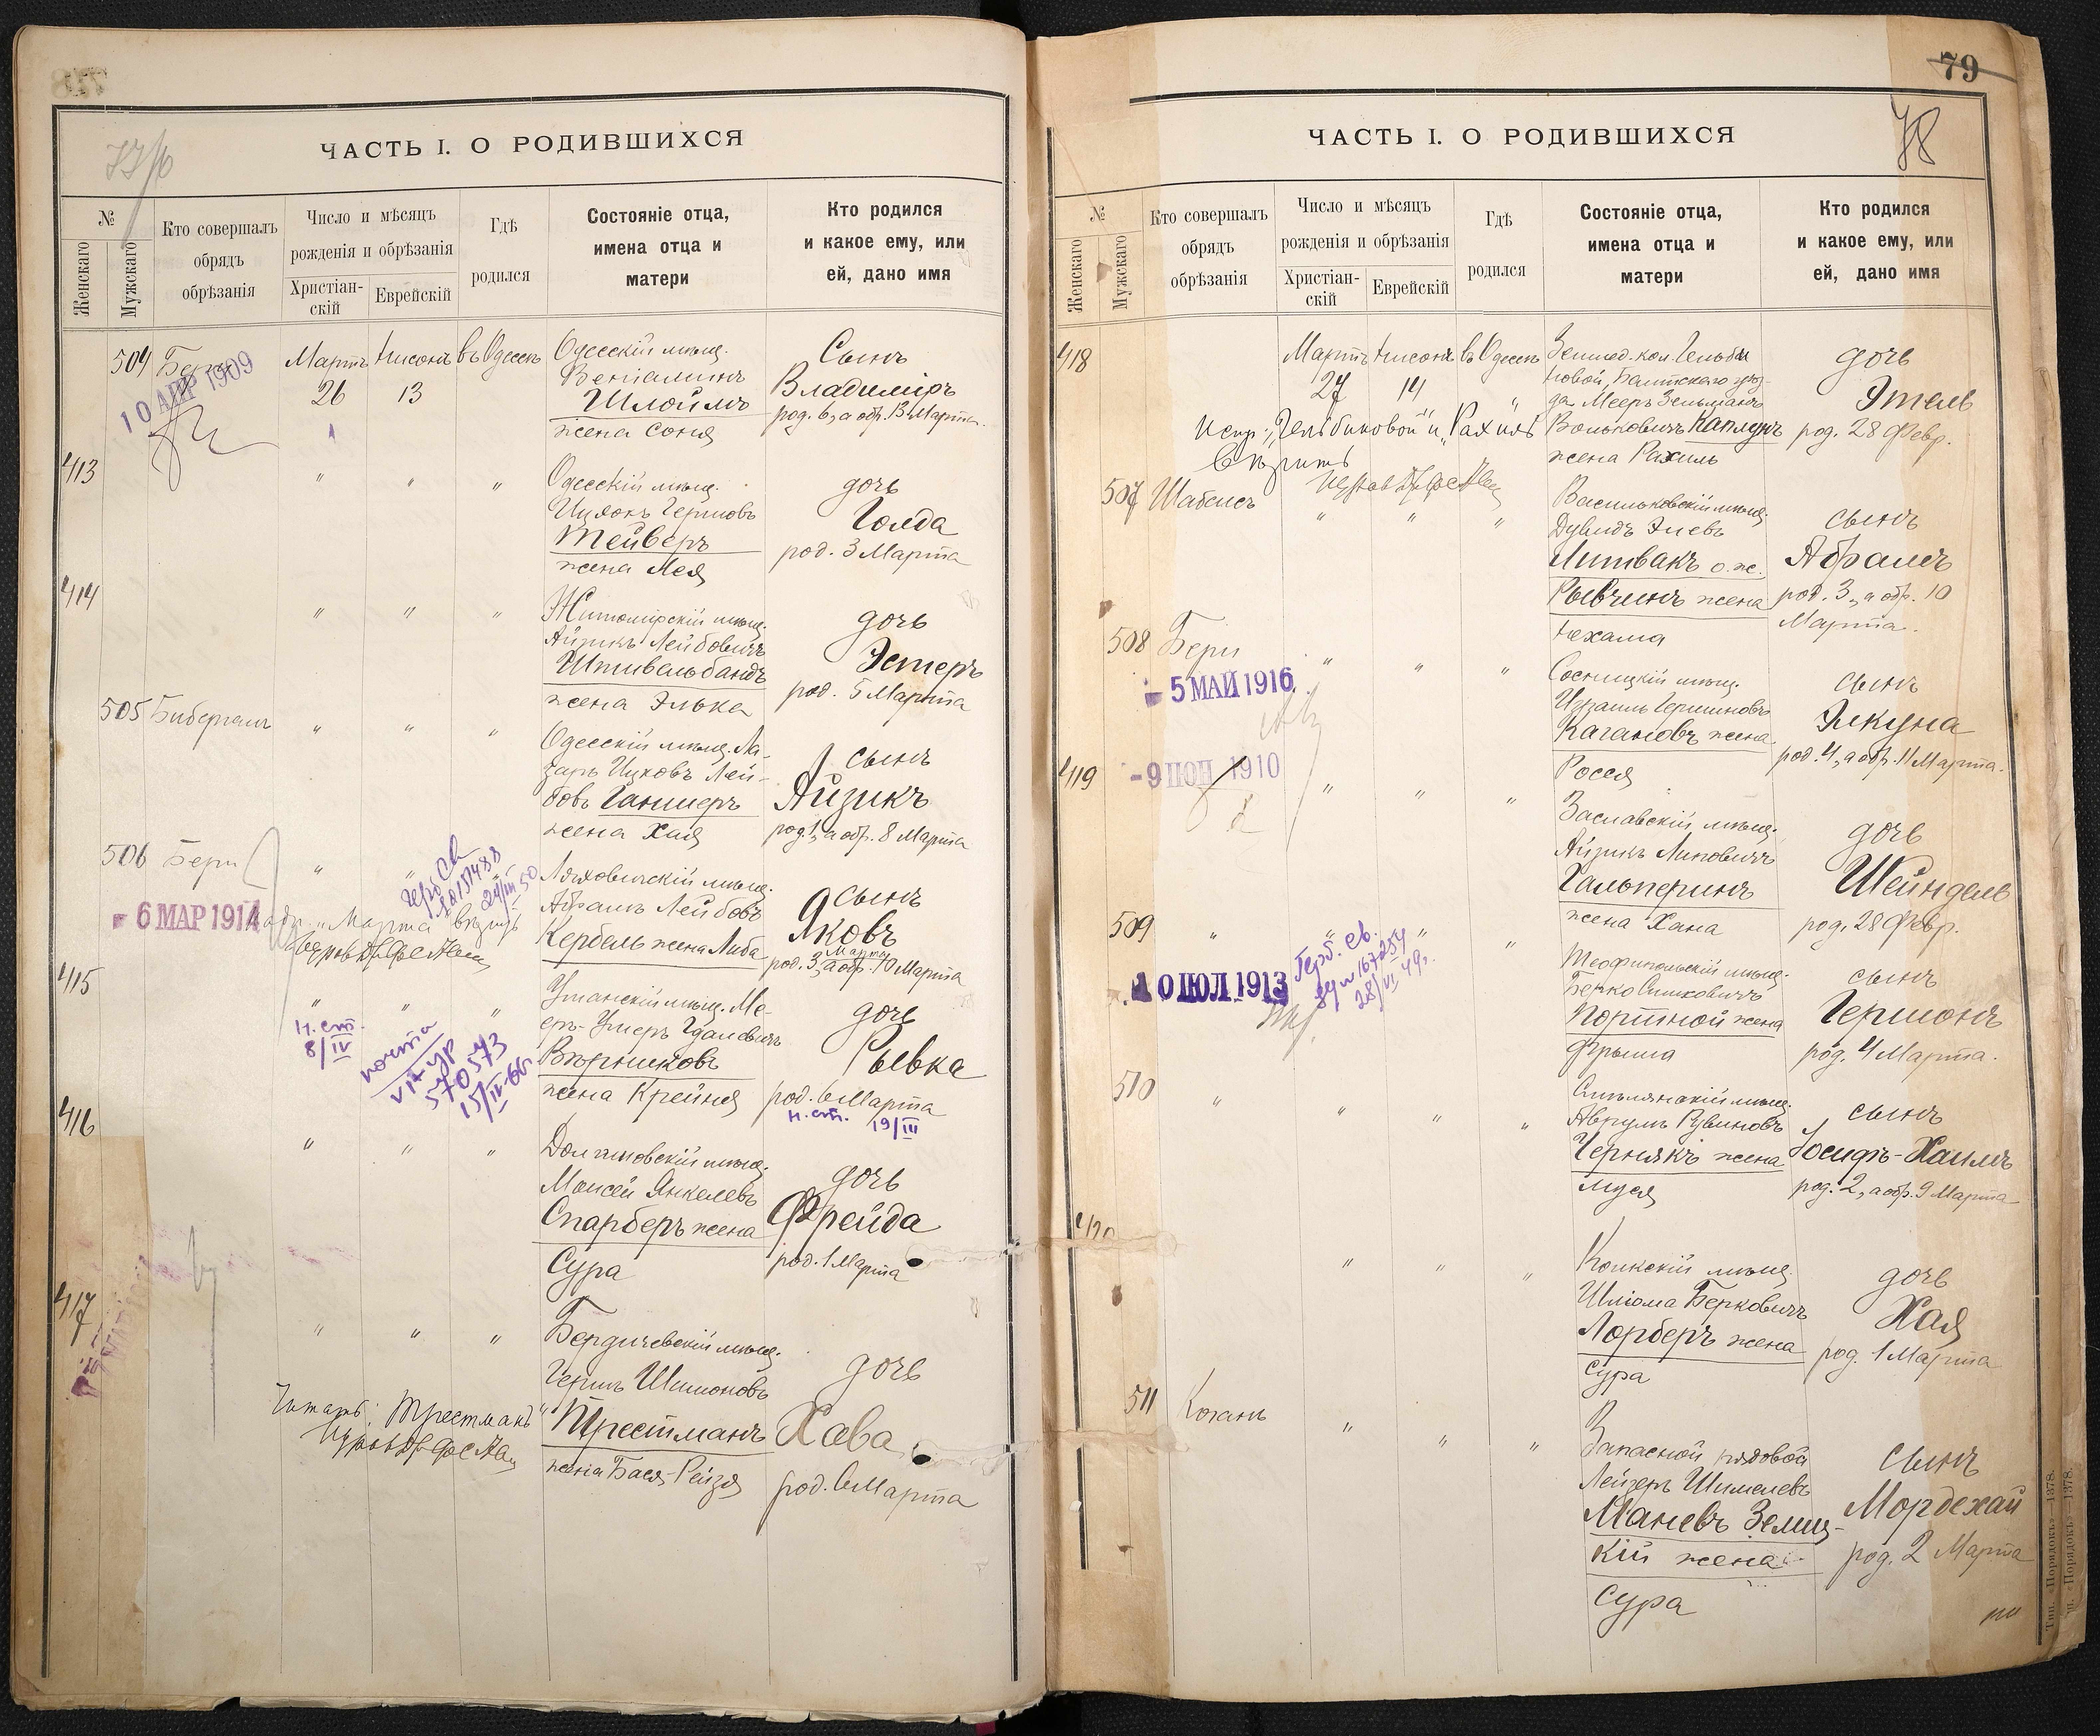 ЧАСТЬ I. О РОДИВШИХСЯ
№
Женскаго
Мужскаго
Кто совершалъ
обрядъ
обрѣзанія
Число и мѣсяцъ
рожденія и обрѣзанія
Христіан-
скій
Еврейскій
Гдѣ
родился
Состояніе отца,
имена отца и
матери
Кто родился
и какое ему, или
ей, дано имя
504
10 АПР 1909
Мартъ
26
Нисонъ
13
въ Одессѣ
Одесскій мѣщ.
Веніаминъ
Шлоймъ
жена Соня
Сынъ
Владиміръ
род. 6, а обр. 13 Марта.
413
"
"
"
Одесскій мѣщ.
Ицхокъ Гершовъ
Тейверъ
жена Лея
дочь
Голда
род. 3 Марта
414
"
"
"
Житомірскій мѣщ.
Айзикъ Лейбовичъ
Штивельбандъ
жена Элька
дочь
Эстеръ
род. 5 Марта
505
Бибергалъ
"
"
"
Одесскій мѣщ. Ла-
зарь Ицковъ Лей-
бовъ Ганшеръ
жена Хая
сынъ
Айзикъ
род. 1, а обр. 8 Марта
506
Бери
6 МАР 1914
"
"
"
24/III 50
Ляховичскій мѣщ.
Абрамъ Лейбовъ
Кербель жена Либа
сынъ
Яковъ
Марта
род. 3, а обр. 10 Марта
415
"
"
"
н. ст.
8/IV
570573
15/IV-66г.
Уманскій мѣщ. Ме-
еръ-Умеръ Гдалевичъ
Вѣрниковъ
жена Крейня
дочь
Рывка
род. 6 Марта
н. ст. 19/III
416
"
"
"
мѣщ.
Моисей Янкелевъ
Спарберъ жена
Сура
дочь
Фрейда
род. 1 Марта
417
"
"
"
Читать: "Трестманъ"
Бердичевскій мѣщ.
Гершъ Шимоновъ
Трестманъ
жена Бася-Рейзя
дочь
Хава
род. 6 Марта
79
78
ЧАСТЬ I. О РОДИВШИХСЯ
№
Женскаго
Мужскаго
Кто совершалъ
обрядъ
обрѣзанія
Число и мѣсяцъ
рожденія и обрѣзанія
Христіан-
скій
Еврейскій
Гдѣ
родился
Состояніе отца,
имена отца и
матери
Кто родился
и какое ему, или
ей, дано имя
418
Мартъ
27
Нисонъ
14
въ Одессѣ
"
Испр: „Гельбиновой" и „Рахиль"
вѣрить
Землед. кол. Гельби
новой, Балтскаго уѣз-
да Мееръ Зельманъ
Вольковичъ Каплунъ
жена Рахиль
дочь
Этель
род. 28 Февр.
507
Шабельсъ
"
"
"
Васильковскій мѣщ.
Дувидъ Элевъ
Литвакъ о. же.
Рывчинъ жена
Нехама
сынъ
Абрамъ
род. 3, а обр. 10
Марта.
508
Бери
5 МАЙ 1916
"
"
"
Сосницкій мѣщ.
Израиль Гершиновъ
Кагановъ жена
Рося
сынъ
Элкуна
род. 4, а обр. 11 Марта.
419
1910
"
"
"
Заславскій мѣщ.
Айзикъ Липовичъ
Гальперинъ
жена Хана
дочь
Шейндель
род. 28 Февр.
509
"
"
"
"
10 ІЮЛ 1913
Герб. св.
28/VI 49г.
Теофипольскій мѣщ.
Берко Симховичъ
Портной жена
Фрыма
сынъ
Гершонъ
род. 4 Марта.
510
"
"
"
"
мѣщ.
Аврумъ Рувиновъ
Чернякъ жена
Муся
сынъ
Іосифъ-Хаимъ
род. 2, а обр. 9 Марта
420
"
"
"
мѣщ.
Шліома Берковичъ
Лорберъ жена
Сура
дочь
Хая
род. 1 Марта
511
Коганъ
"
"
"
Запасной рядовой
Лейзеръ Шимелевъ
Маневъ Землиц-
кій жена
Сура
сынъ
Мордехай
род. 2 Марта
Тип. «Порядокъ»—1378.